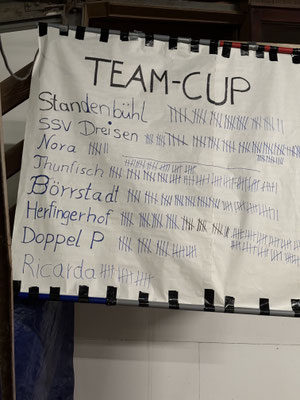 TEAM-CUP
Standenbühl
SSV Dreisen
Nora
Thunfisch
Börrstadt
Herfingerhof
Doppel P
Ricarda